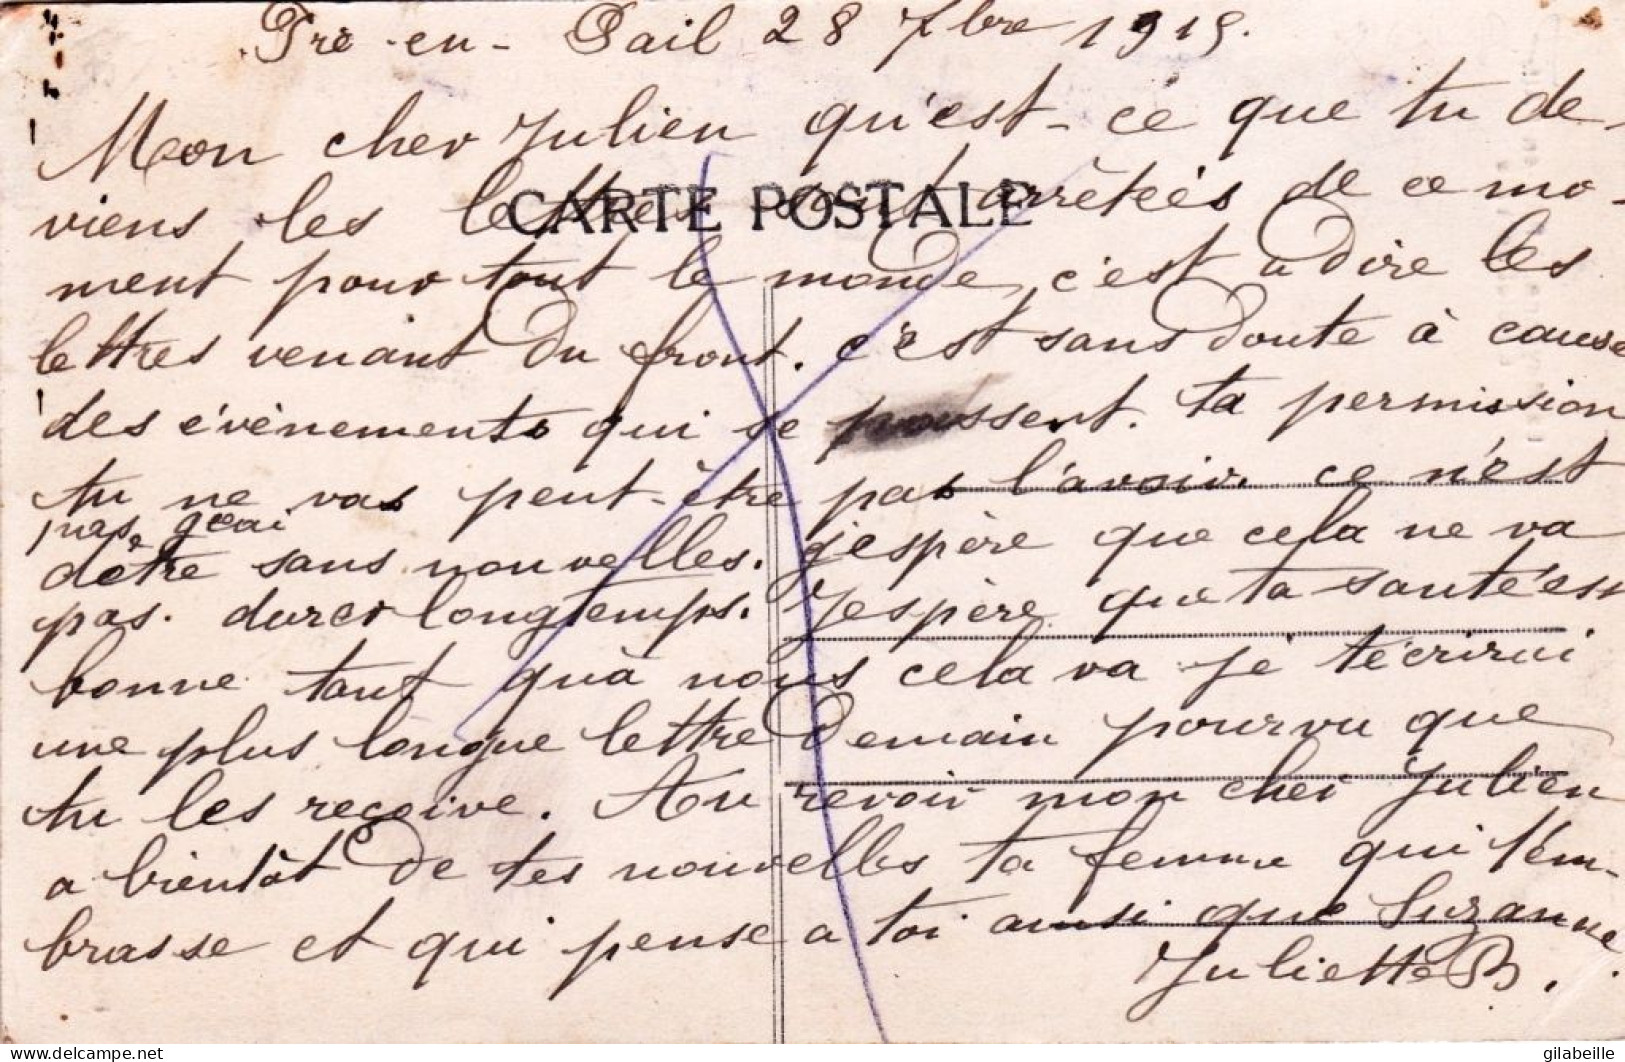 Pré-en-Pail 28 7bre 1915.
Mon cher Julien qu'est-ce que tu de-
viens les lettres sont arrêtées de ce mo-
CARTE POSTALE
ment pour tout le monde, c'est a dire les
lettres venant du front. c'est sans doute à cause
des évènements qui se poussent. ta permission
tu ne vas peut-être pas l'avoir. ce n'est
pas gai
dêtre sans nouvelles. j'espère que cela ne va
pas. durer longtemps. J'espère que ta santé est
bonne tant qu'à nous cela va je t'écrirai
une plus longue lettre demain pourvu que
tu les reçoive. Au revoir mon cher Julien
a bientôt de tes nouvelles ta femme qui t'em-
brasse et qui pense a toi ainsi que Suzanne.
Juliette B.
gilabeille